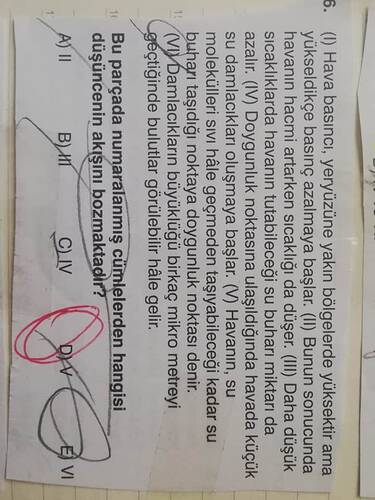 6. (I) Hava basıncı, yeryüzüne yakın bölgelerde yüksektir ama
yükseldikçe basınç azalmaya başlar. (II) Bunun sonucunda
havanın hacmi artarken sıcaklığı da düşer. (III) Daha düşük
sıcaklıklarda havanın tutabileceği su buharı miktarı da
azalır. (IV) Doygunluk noktasına ulaşıldığında havada küçük
su damlacıkları oluşmaya başlar. (V) Havanın, su
molekülleri sıvı hâle geçmeden taşıyabileceği kadar su
buharı taşıdığı noktaya doygunluk noktası denir.
(VI) Damlacıkların büyüklüğü birkaç mikro metreyi
geçtiğinde bulutlar görülebilir hâle gelir.
Bu parçada numaralanmış cümlelerden hangisi
düşüncenin akışını bozmaktadır?
A) II B) III C) IV D) V E) VI